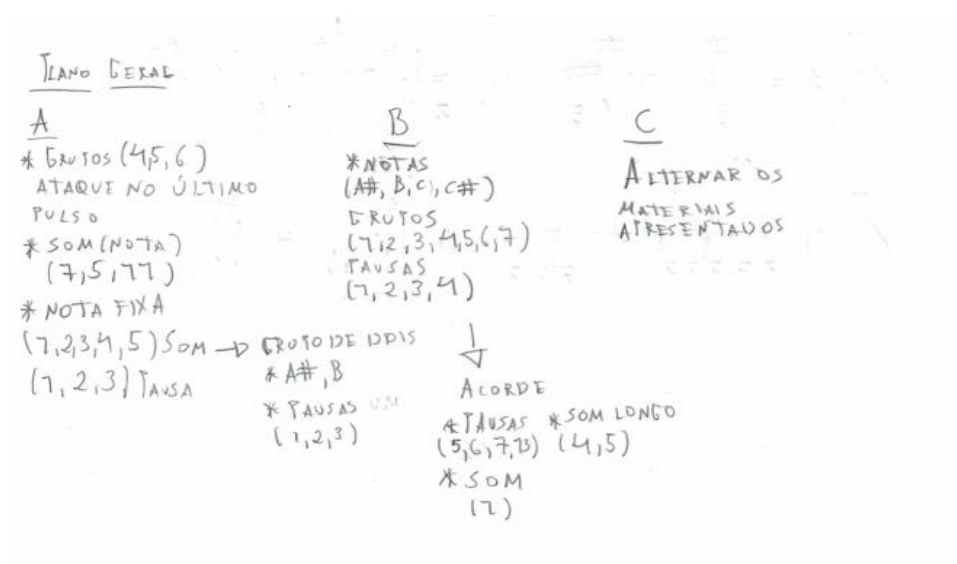 PLANO GERAL
A
* GRUPOS (4,5,6)
ATAQUE NO ÚLTIMO
PULSO
* SOM (NOTA)
(7,5,11)
* NOTA FIXA
(1,2,3,4,5) SOM → GRUPO DE DOIS
(1,2,3) PAUSA
* A#, B
* PAUSAS
(1,2,3)
B
* NOTAS
(A#, B, C, C#)
GRUPOS
(1,2,3,4,5,6,7)
PAUSAS
(1,2,3,4)
ACORDE
* PAUSAS * SOM LONGO
(5,6,7,13) (4,5)
* SOM
C
ALTERNAR OS
MATERIAIS
APRESENTADOS